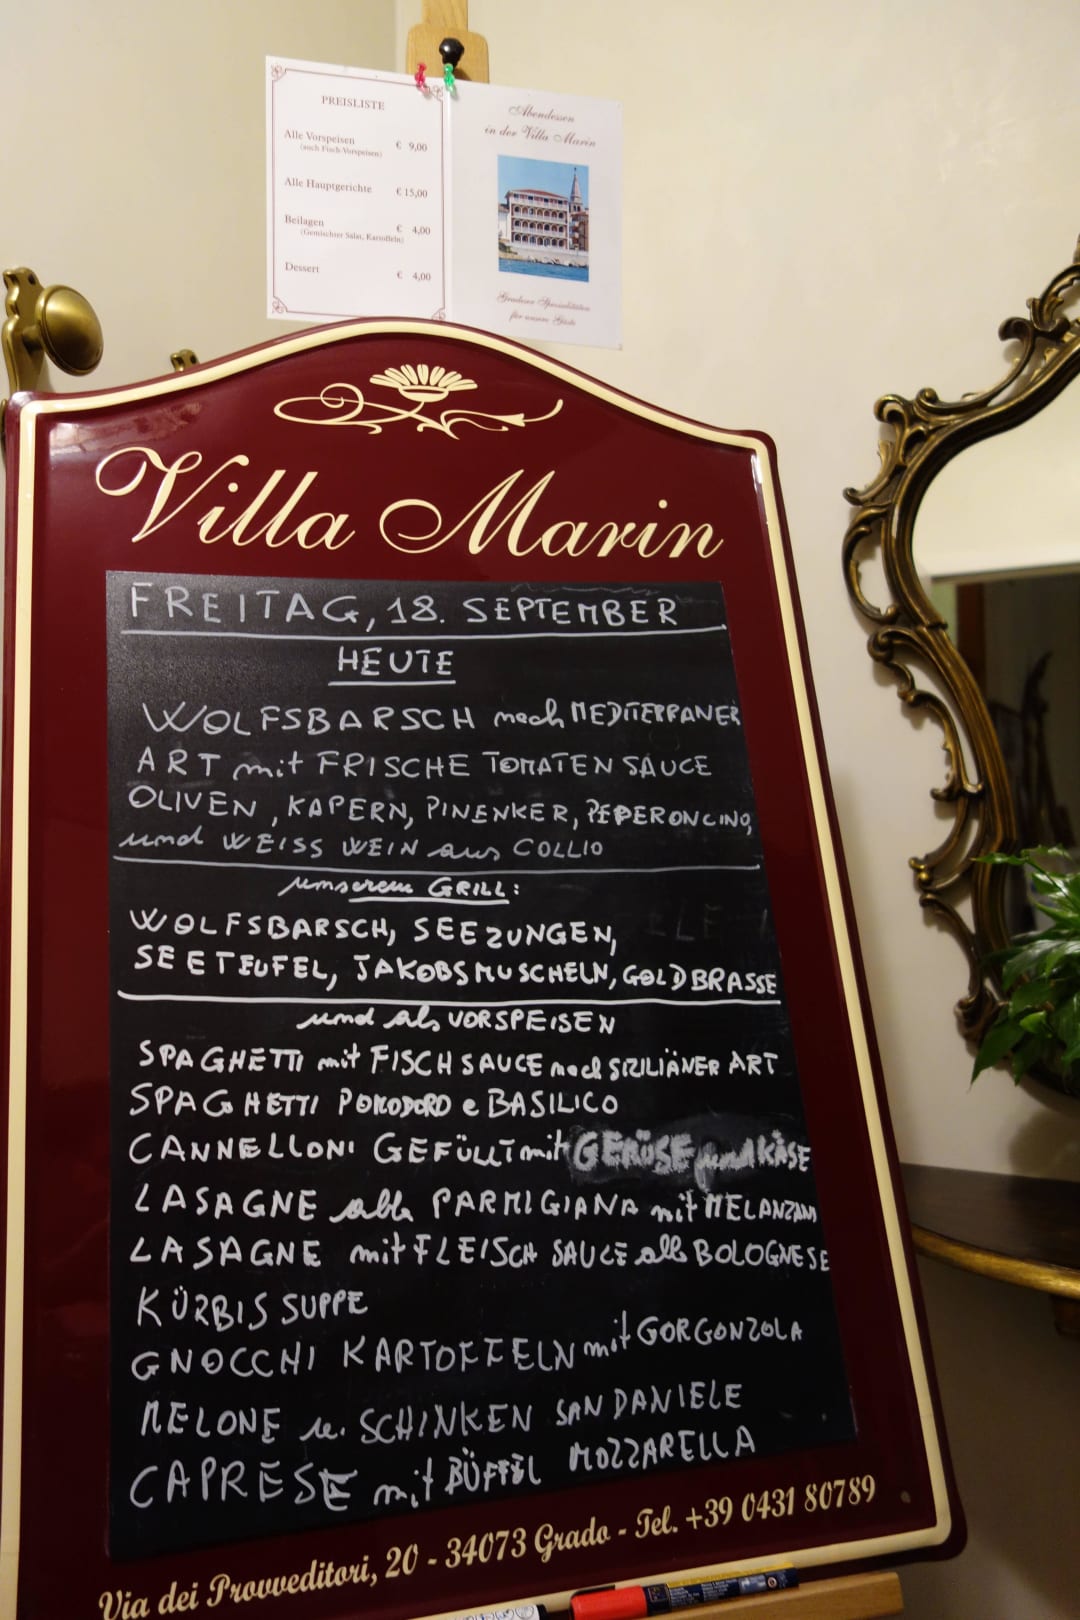 PREISLISTE
Alle Vorspeisen € 9,00
(auch Fisch-Vorspeisen)
Alle Hauptgerichte € 15,00
Beilagen € 4,00
(Gemischter Salat, Kartoffeln)
Dessert € 4,00
Abendessen
in der Villa Marin
Gradeser Spezialitäten
für unsere Gäste
Villa Marin
FREITAG, 18. SEPTEMBER
HEUTE
WOLFSBARSCH nach MEDITERRANER
ART mit FRISCHE TOMATEN SAUCE
OLIVEN, KAPERN, PINENKER, PEPERONCINO,
und WEISS WEIN aus COLLIO
unserem GRILL:
WOLFSBARSCH, SEEZUNGEN,
SEETEUFEL, JAKOBSMUSCHELN, GOLDBRASSE
und als VORSPEISEN
SPAGHETTI mit FISCHSAUCE nach SIZILIÄNER ART
SPAGHETTI POMODORO e BASILICO
CANNELLONI GEFÜLLT mit GEMÜSE und KÄSE
LASAGNE alla PARMIGIANA mit MELANZANI
LASAGNE mit FLEISCH SAUCE alla BOLOGNESE
KÜRBIS SUPPE
GNOCCHI KARTOFFELN mit GORGONZOLA
MELONE u. SCHINKEN SAN DANIELE
CAPRESE mit BÜFFEL MOZZARELLA
Via dei Provveditori, 20 - 34073 Grado - Tel. +39 0431 80789